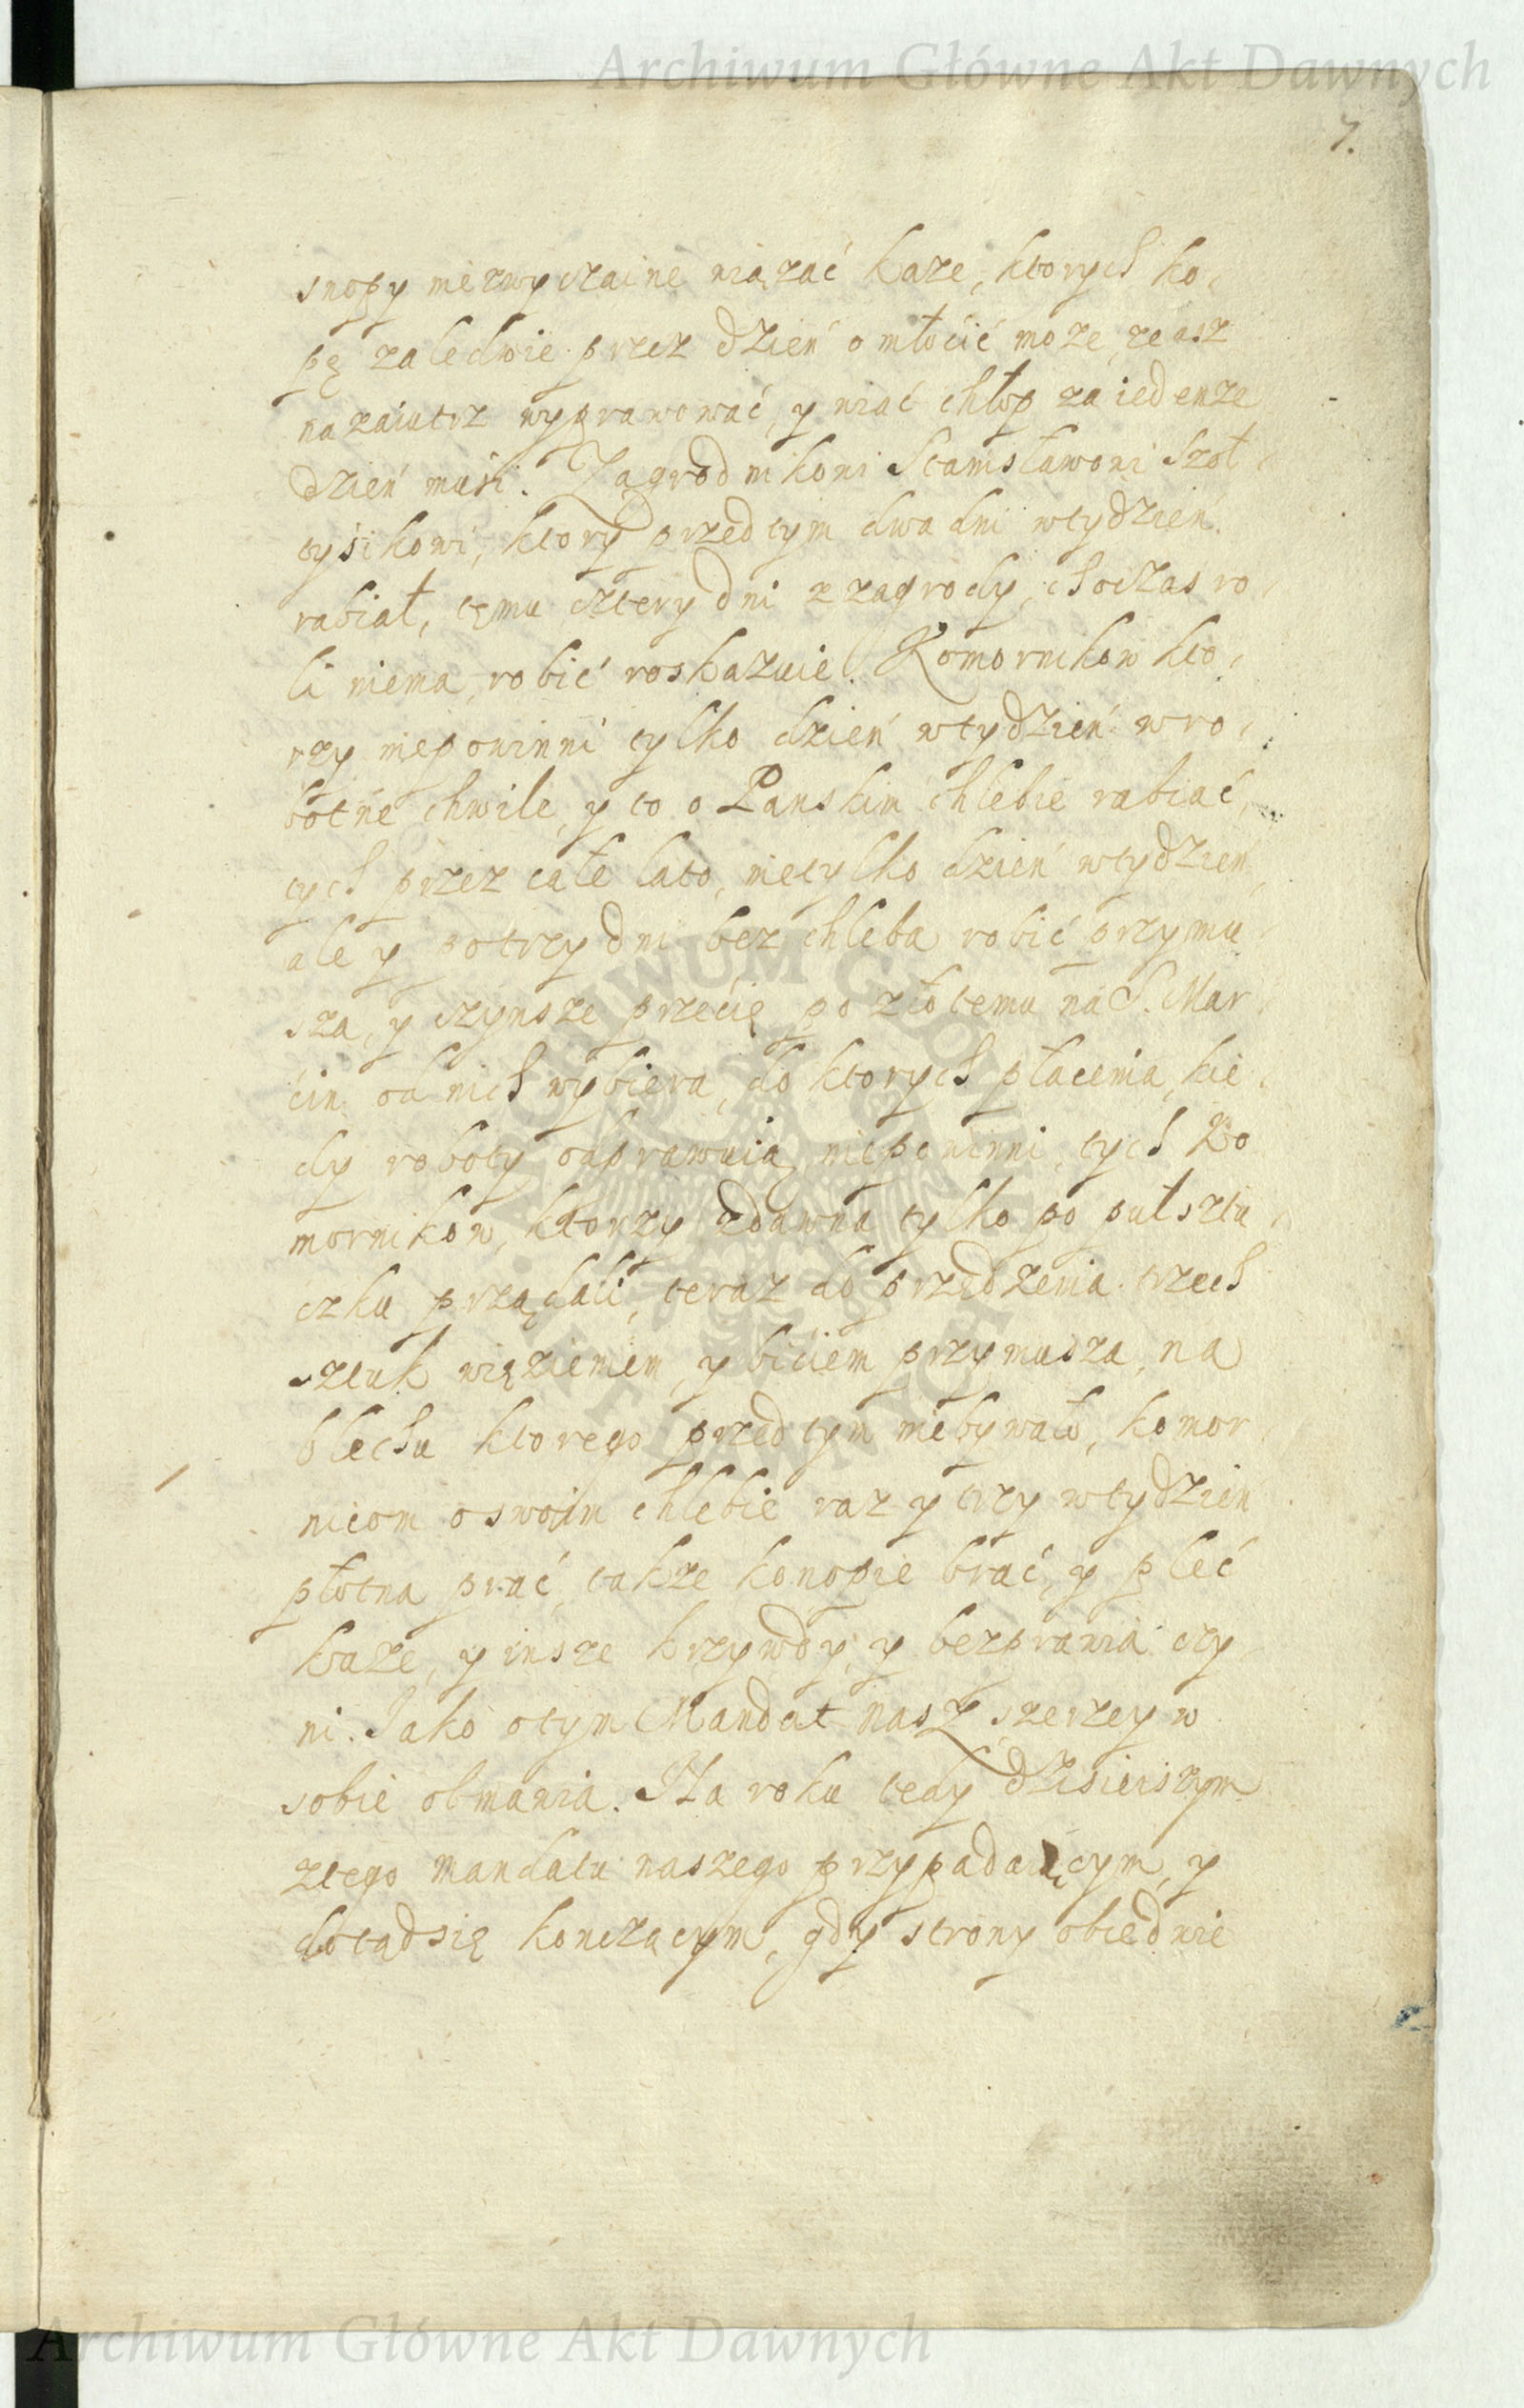 Archiwum Główne Akt Dawnych
7.
snopy niezwyczaine wiązać kaze, ktorych ko,
pę zaledwie przez dzień omłocić moze, zeasz
nazaiutrz wyprawować, y wiać chłop zaiedenze
dzień musi. Zagrodnikowi Stanisławowi Szoł,
tysikowi, ktory przedtym dwa dni wtydzień
rabiał, temu cztery dni z zagrody, choczas ro,
li niema, robić roskazuie. Komornikow kto,
rzy niepowinni tylko dzień wtydzień wro,
botne chwile, y to o Panskim chlebie rabiać,
tych przez całe lato, nietylko dzień wtydzień,
ale y potrzy dni bez chleba robić przymu,
sza, y czynsze przecię po złotemu na S. Mar,
cin od nich wybiera, do ktorych płacenia, kie,
dy roboty odprawuią, niepowinni, tych Ko
mornikow, ktorzy zdawna tylko po pułsztu,
czku przędali, teraz do przędzenia trzech
sztuk więzieniem, y biciem przymusza, na
blechu ktorego przedtym niebywało, komor,
nicom oswoim chlebie raz y trzy wtydzień
płotna prać, takze konopie brać, y pleć
kaze, y insze krzywdy, y bezprawia czy,
ni. Jako otym Mandat nasz szerzey w
sobie obmawia. Na roku tedy dzisieiszym
ztego mandatu naszego przypadaiącym, y
dotądsię konczącym, gdy strony obiedwie
ARCHIWUM GŁÓWNE AKT DAWNYCH
Archiwum Główne Akt Dawnych